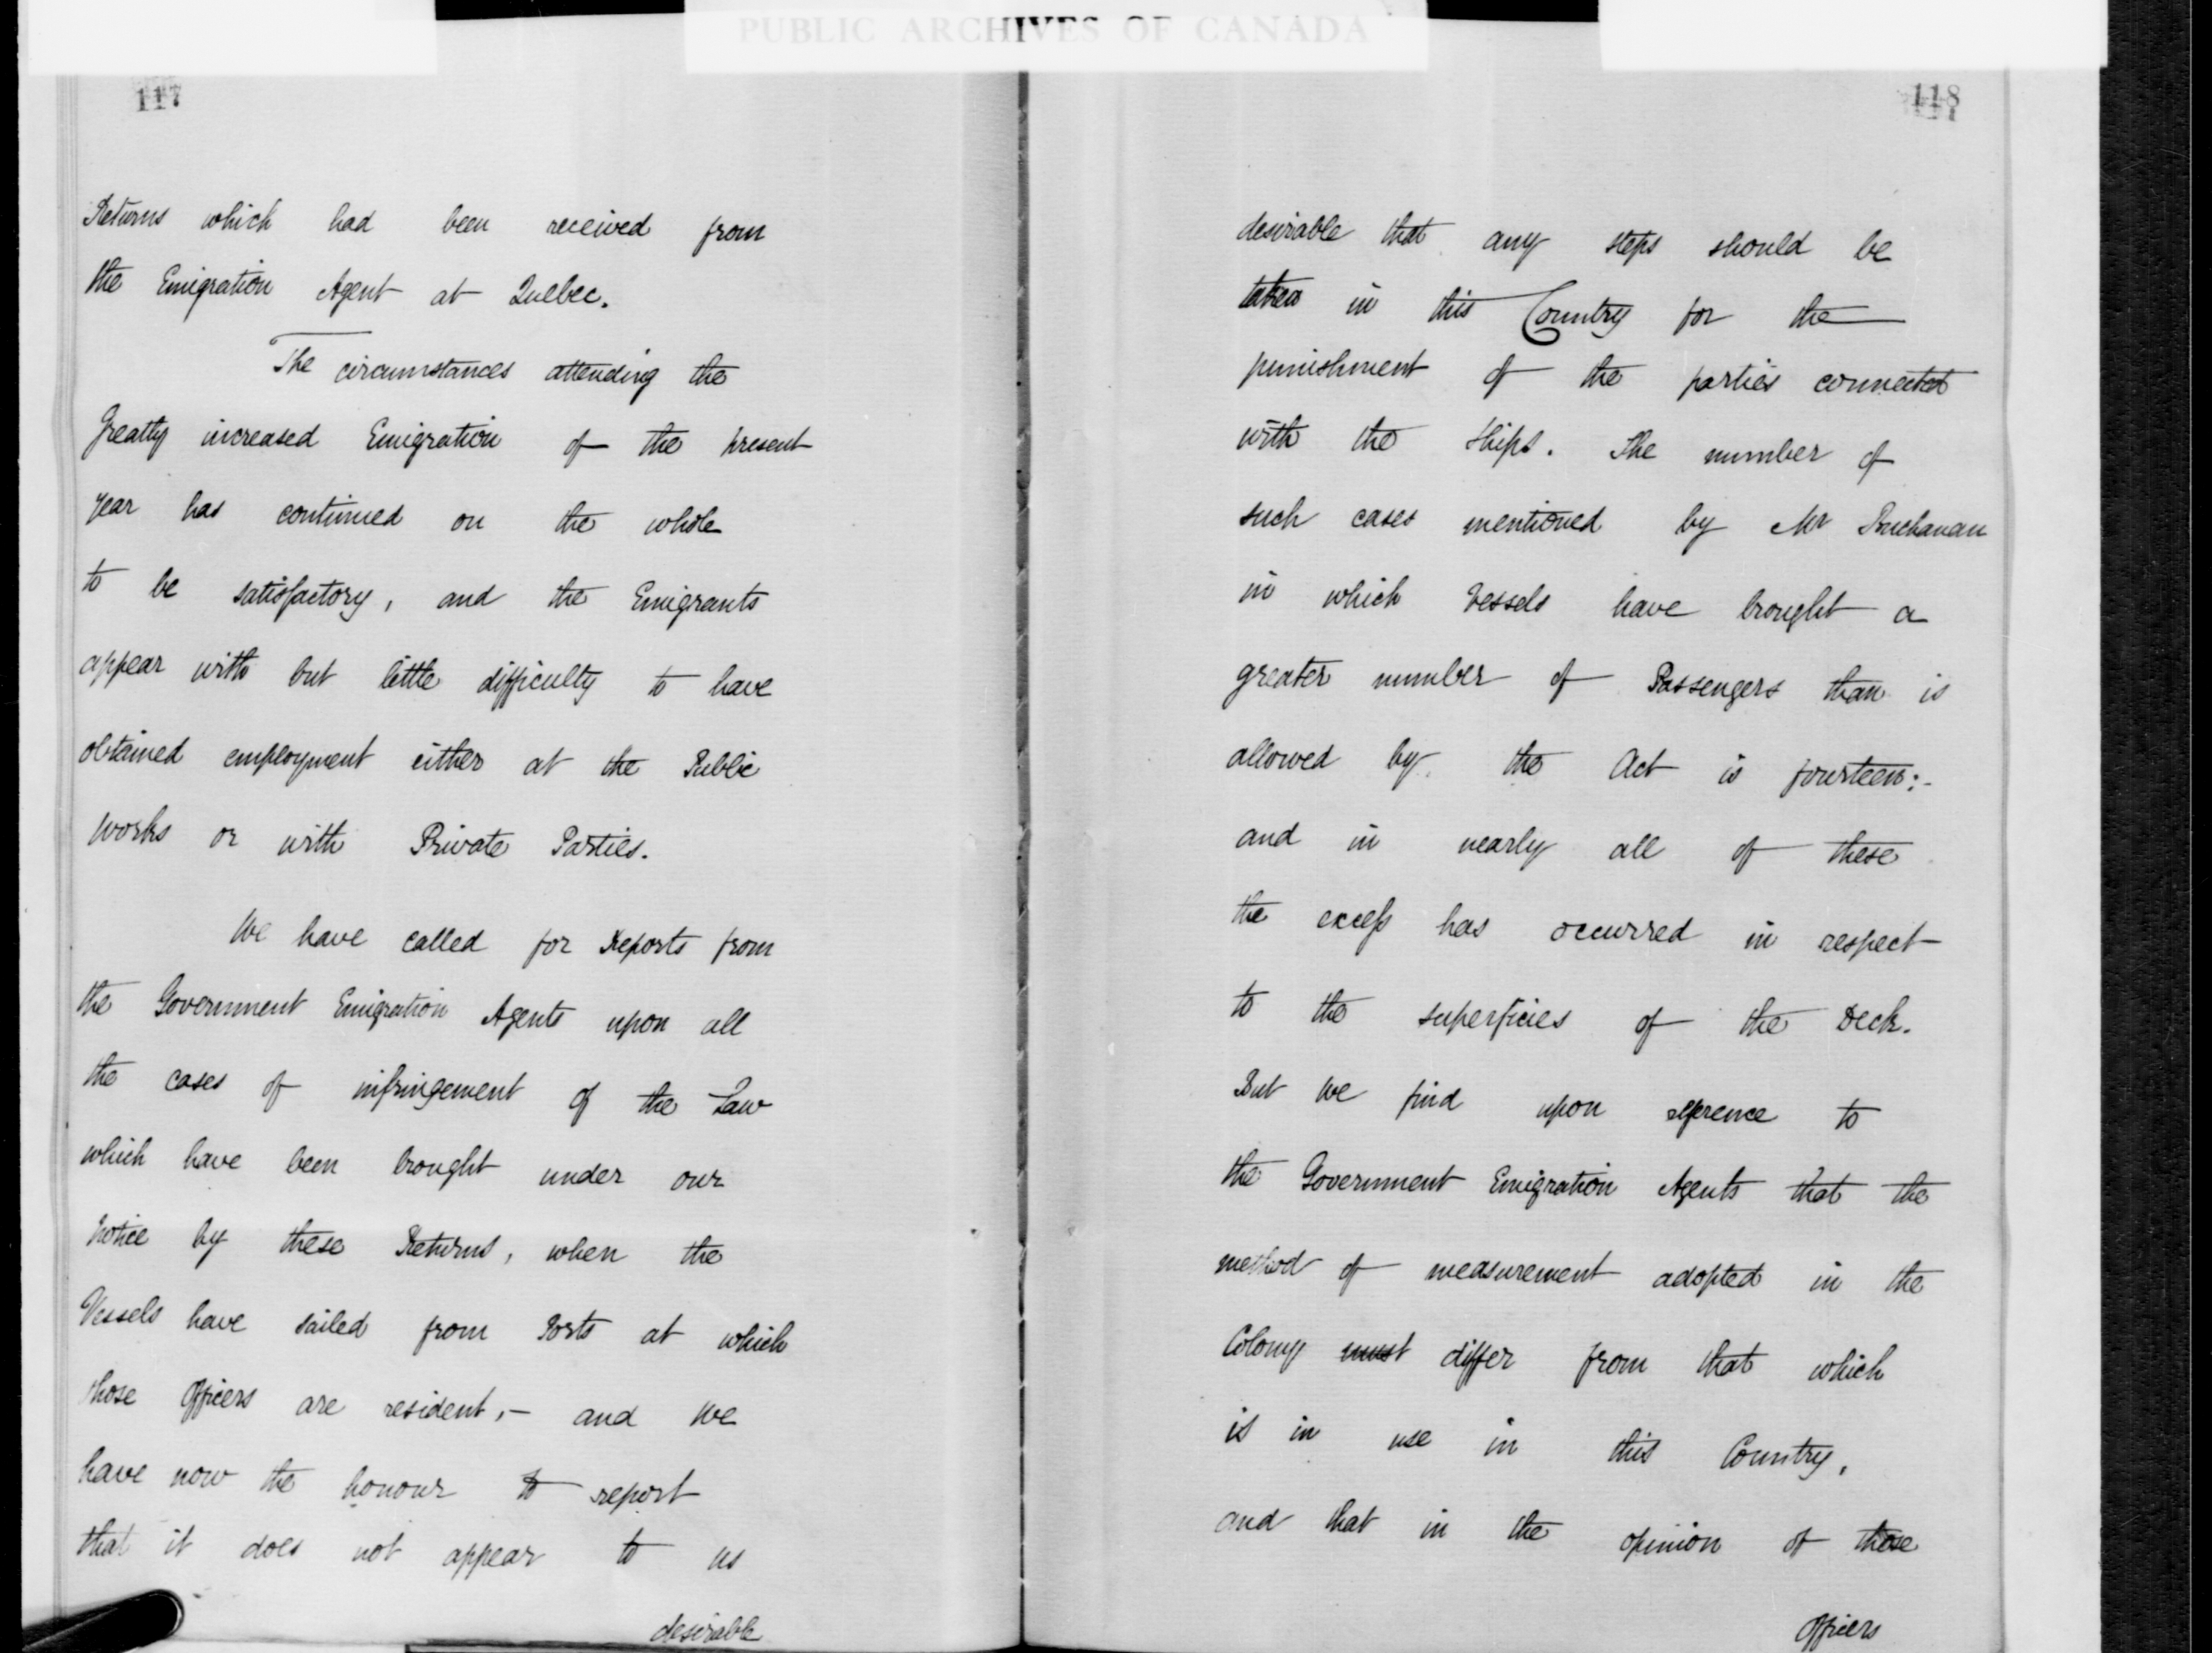 PUBLIC ARCHIVES OF CANADA
117
Returns which had been received from
the Emigration Agent at Quebec.
The circumstances attending the
Greatly increased Emigration of the present
year has continued on the whole
to be satisfactory, and the Emigrants
appear with but little difficulty to have
obtained employment either at the Public
Works or with Private Parties.
We have called for Reports from
the Government Emigration Agents upon all
the cases of infringement of the Law
which have been brought under our
notice by these Returns, when the
Vessels have sailed from Ports at which
those Officers are resident,- and we
have now the honour to report
that it does not appear to us
desirable
118
desirable that any steps should be
taken in this Country for the
punishment of the parties connected
with the Ships. The number of
such cases mentioned by Mr Buchanan
in which Vessels have brought a
greater number of Passengers than is
allowed by the Act is fourteen:-
and in nearly all of these
the excess has occurred in respect
to the superficies of the Deck.
But we find upon reference to
the Government Emigration Agents that the
method of measurement adopted in the
Colony must differ from that which
is in use in this Country,
and that in the opinion of those
Officers